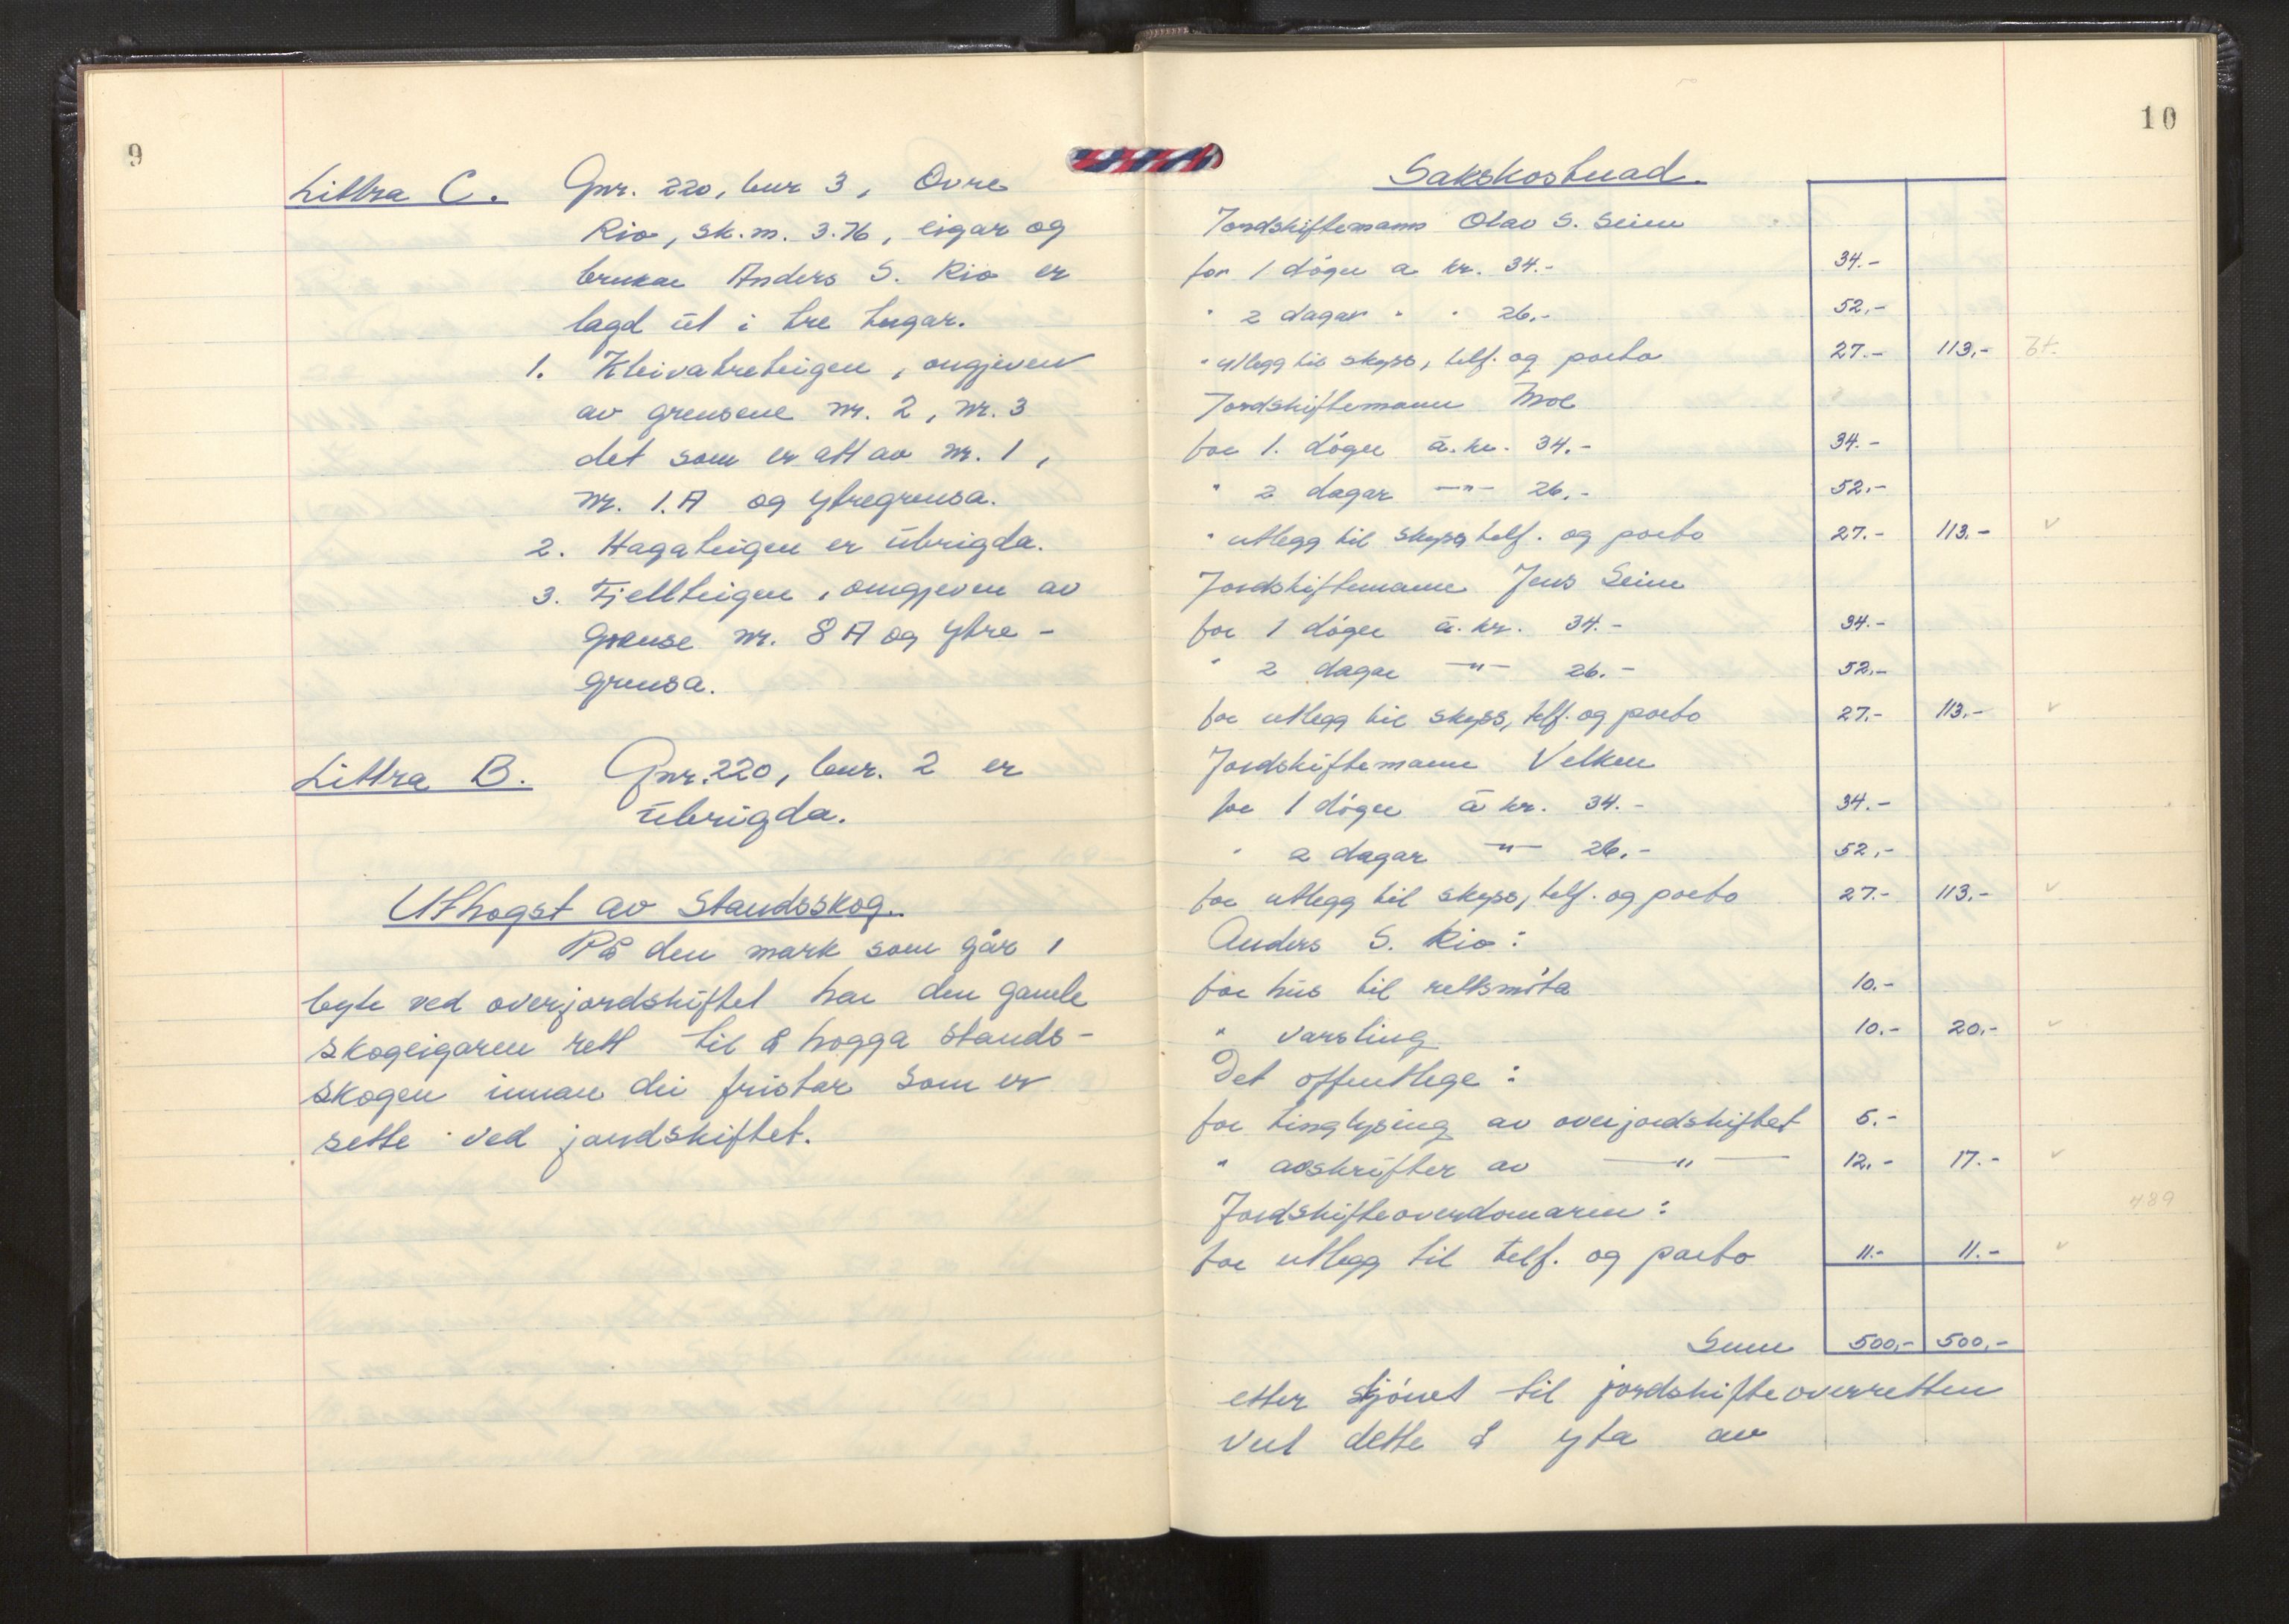 9
Littra C. Gnr. 220, bnr 3, Øvre
Rio, sk.m. 3.76, eigar og
brukar Anders S. Rio er
lagd ut i tre teigar.
1. Kleivatreteigen, omgjeven
av grensene nr. 2, nr. 3
det som er att av nr. 1,
nr. 1.A og ytregrensa.
2. Hagateigen er ubrigda.
3. Fjellteigen, omgjeven av
Grense nr. 8 A og ytre-
grensa.
Littra B. Gnr. 220, bnr. 2 er
ubrigda.
Uthogst av Standsskog.
På den mark som går i
byte ved overjordskiftet har den gamle
skogeigaren rett til å hogga stands-
skogen innan dei fristar som er
sette ved jordskiftet.
10
Sakskostnad.
Jordskiftemann Olav S. Seim
for 1 døger a kr. 34.- 34.-
" 2 dagar " " 26,- 52,-
" utlegg til skyss, telf. og porto 27.- 113,- bt.
Jordskiftemann Moe
for 1. døger à. kr. 34.- 34.-
" 2 dagar —"— 26,- 52.-
" utlegg til skyss telf. og porto 27.- 113.- v
Jordskiftemann Jens Seim
for 1 døger à. kr. 34.- 34.-
" 2 dagar —"— 26.- 52,-
for utlegg til skyss, telf. og porto 27.- 113.- v
Jordskiftemann Velken
for 1 døger à kr. 34.- 34.-
" 2 dagar —"— 26,- 52,-
for utlegg til skyss, telf. og porto 27.- 113.- v
Anders S. Rio:
for hus til rettsmøta 10.-
" varsling 10.- 20.- v
Det offentlege:
for tinglysing av overjordskiftet 5.-
" avskrifter av —"— 12.- 17.- v
489
Jordskifteoverdomaren:
for utlegg til telf. og porto 11.- 11.- v
Sum 500,- 500,-
etter skjønet til jordskifteoverretten
vert dette å yta av